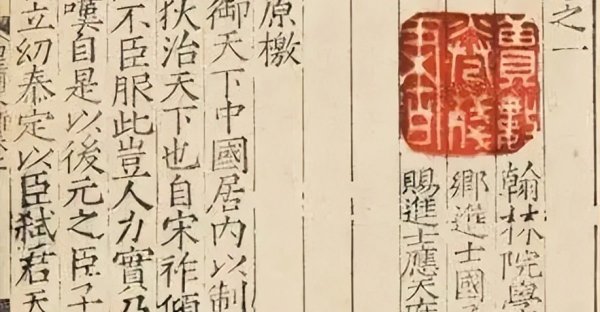 之一
翰林院學
鄉進士國子
賜進士應天府
原檄
御天下中國居内以制
狄治天下也自宋祚傾
不臣服此豈人力實乃
嘆自是以後元之臣子
立幼泰定以臣弑君天